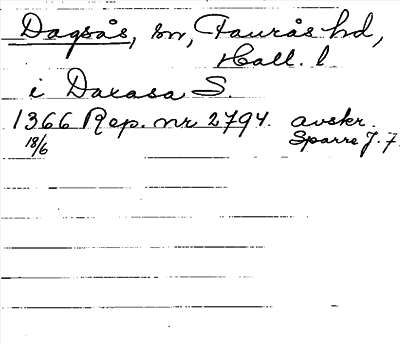 Dagsås, sn, Faurås hd,
Hall. l
i Daxasa S.
1366 Rep. nr 2794. avskr.
18/6 Sparre J. 7.